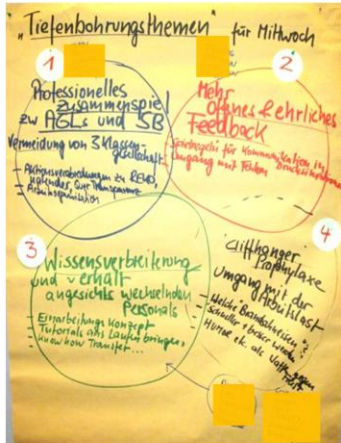 „Tiefenbohrungsthemen" für Mittwoch
1
Professionelles
Zusammenspiel
zw AGLs und SB
Vermeidung von 3 Klassen-
gesellschaft
- Arbeitsorganisation
2
Mehr
offenes & ehrliches
Feedback
- Spielregeln für Kommunikation im
Umgang mit Fehlern
3
Wissensverbreiterung
und verhalt
angesichts wechselnden
Personals
- Einarbeitungskonzept
- Tutorials ans Laufen bringen,
- know how Transfer...
4
Cliffhanger
Prophylaxe
Umgang mit der
Arbeitslast
- Welche
- Schneller & besser werden
- Humor etc. als Waffe gegen